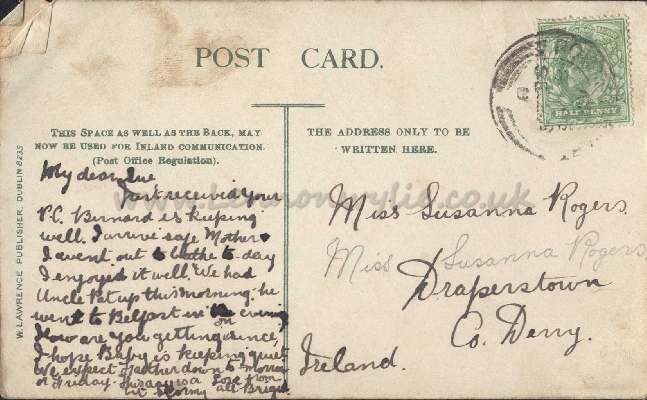 POST CARD.
THIS SPACE AS WELL AS THE BACK, MAY
NOW BE USED FOR INLAND COMMUNICATION.
(Post Office Regulation).
THE ADDRESS ONLY TO BE
WRITTEN HERE.
HALFPENNY
W. LAWRENCE PUBLISHER, DUBLIN 8235
My dear Sue
Just received your
P.C. Bernard is keeping
well. I arrive safe Mother &
I went out to bathe to day
I enjoyed it well. We had
Uncle Pat up this morning. he
went to Belfast in the evening
How are you getting on since,
I hope Baby is keeping quiet
We expect Father down to Morrow
or Friday. this day is a
bit stormy
Love from
all Briged
Miss Susanna Rogers
Miss Susanna Rogers
Draperstown
Co. Derry.
Ireland.